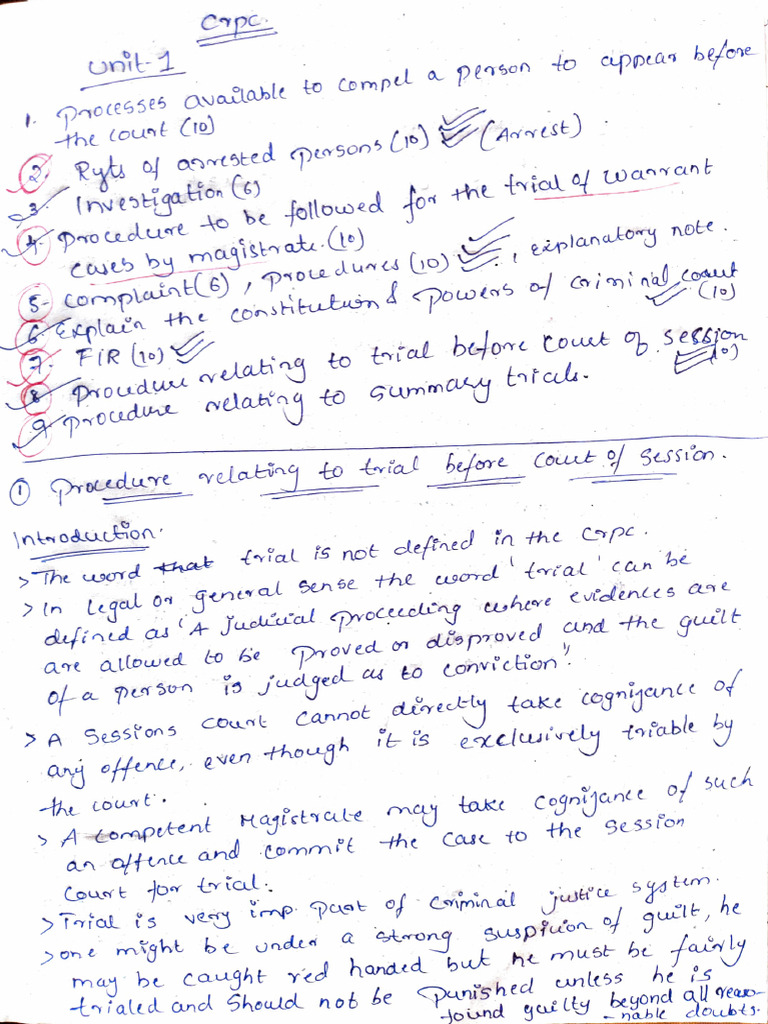 Crpc.
Unit-1
1. Processes available to compel a person to appear before
the court (10)
2. Ryts of arrested persons (10) (Arrest).
3. Investigation (6)
4. Procedure to be followed for the trial of warrant
cases by magistrate. (10)
5- Complaint (6), procedures (10), explanatory note.
6. Explain the constitution & powers of criminal court
(10)
7. FIR (10)
8. Procedure relating to trial before court of session
(10)
9. Procedure relating to summary trials.
① Procedure relating to trial before court of session.
Introduction.
> The word that trial is not defined in the crpc.
> In legal or general sense the word 'trial' can be
defined as 'A judicial proceeding where evidences are
are allowed to be proved or disproved and the guilt
of a person is judged as to conviction".
> A sessions court cannot directly take cognizance of
any offence, even though it is exclusively triable by
the court.
> A competent Magistrate may take cognizance of such
an offence and commit the case to the session
court for trial.
> Trial is very imp part of criminal justice system.
> one might be under a strong suspicion of guilt, he
may be caught red handed but he must be fairly
trialed and should not be punished unless he is
found guilty beyond all reaso-
-nable doubts.